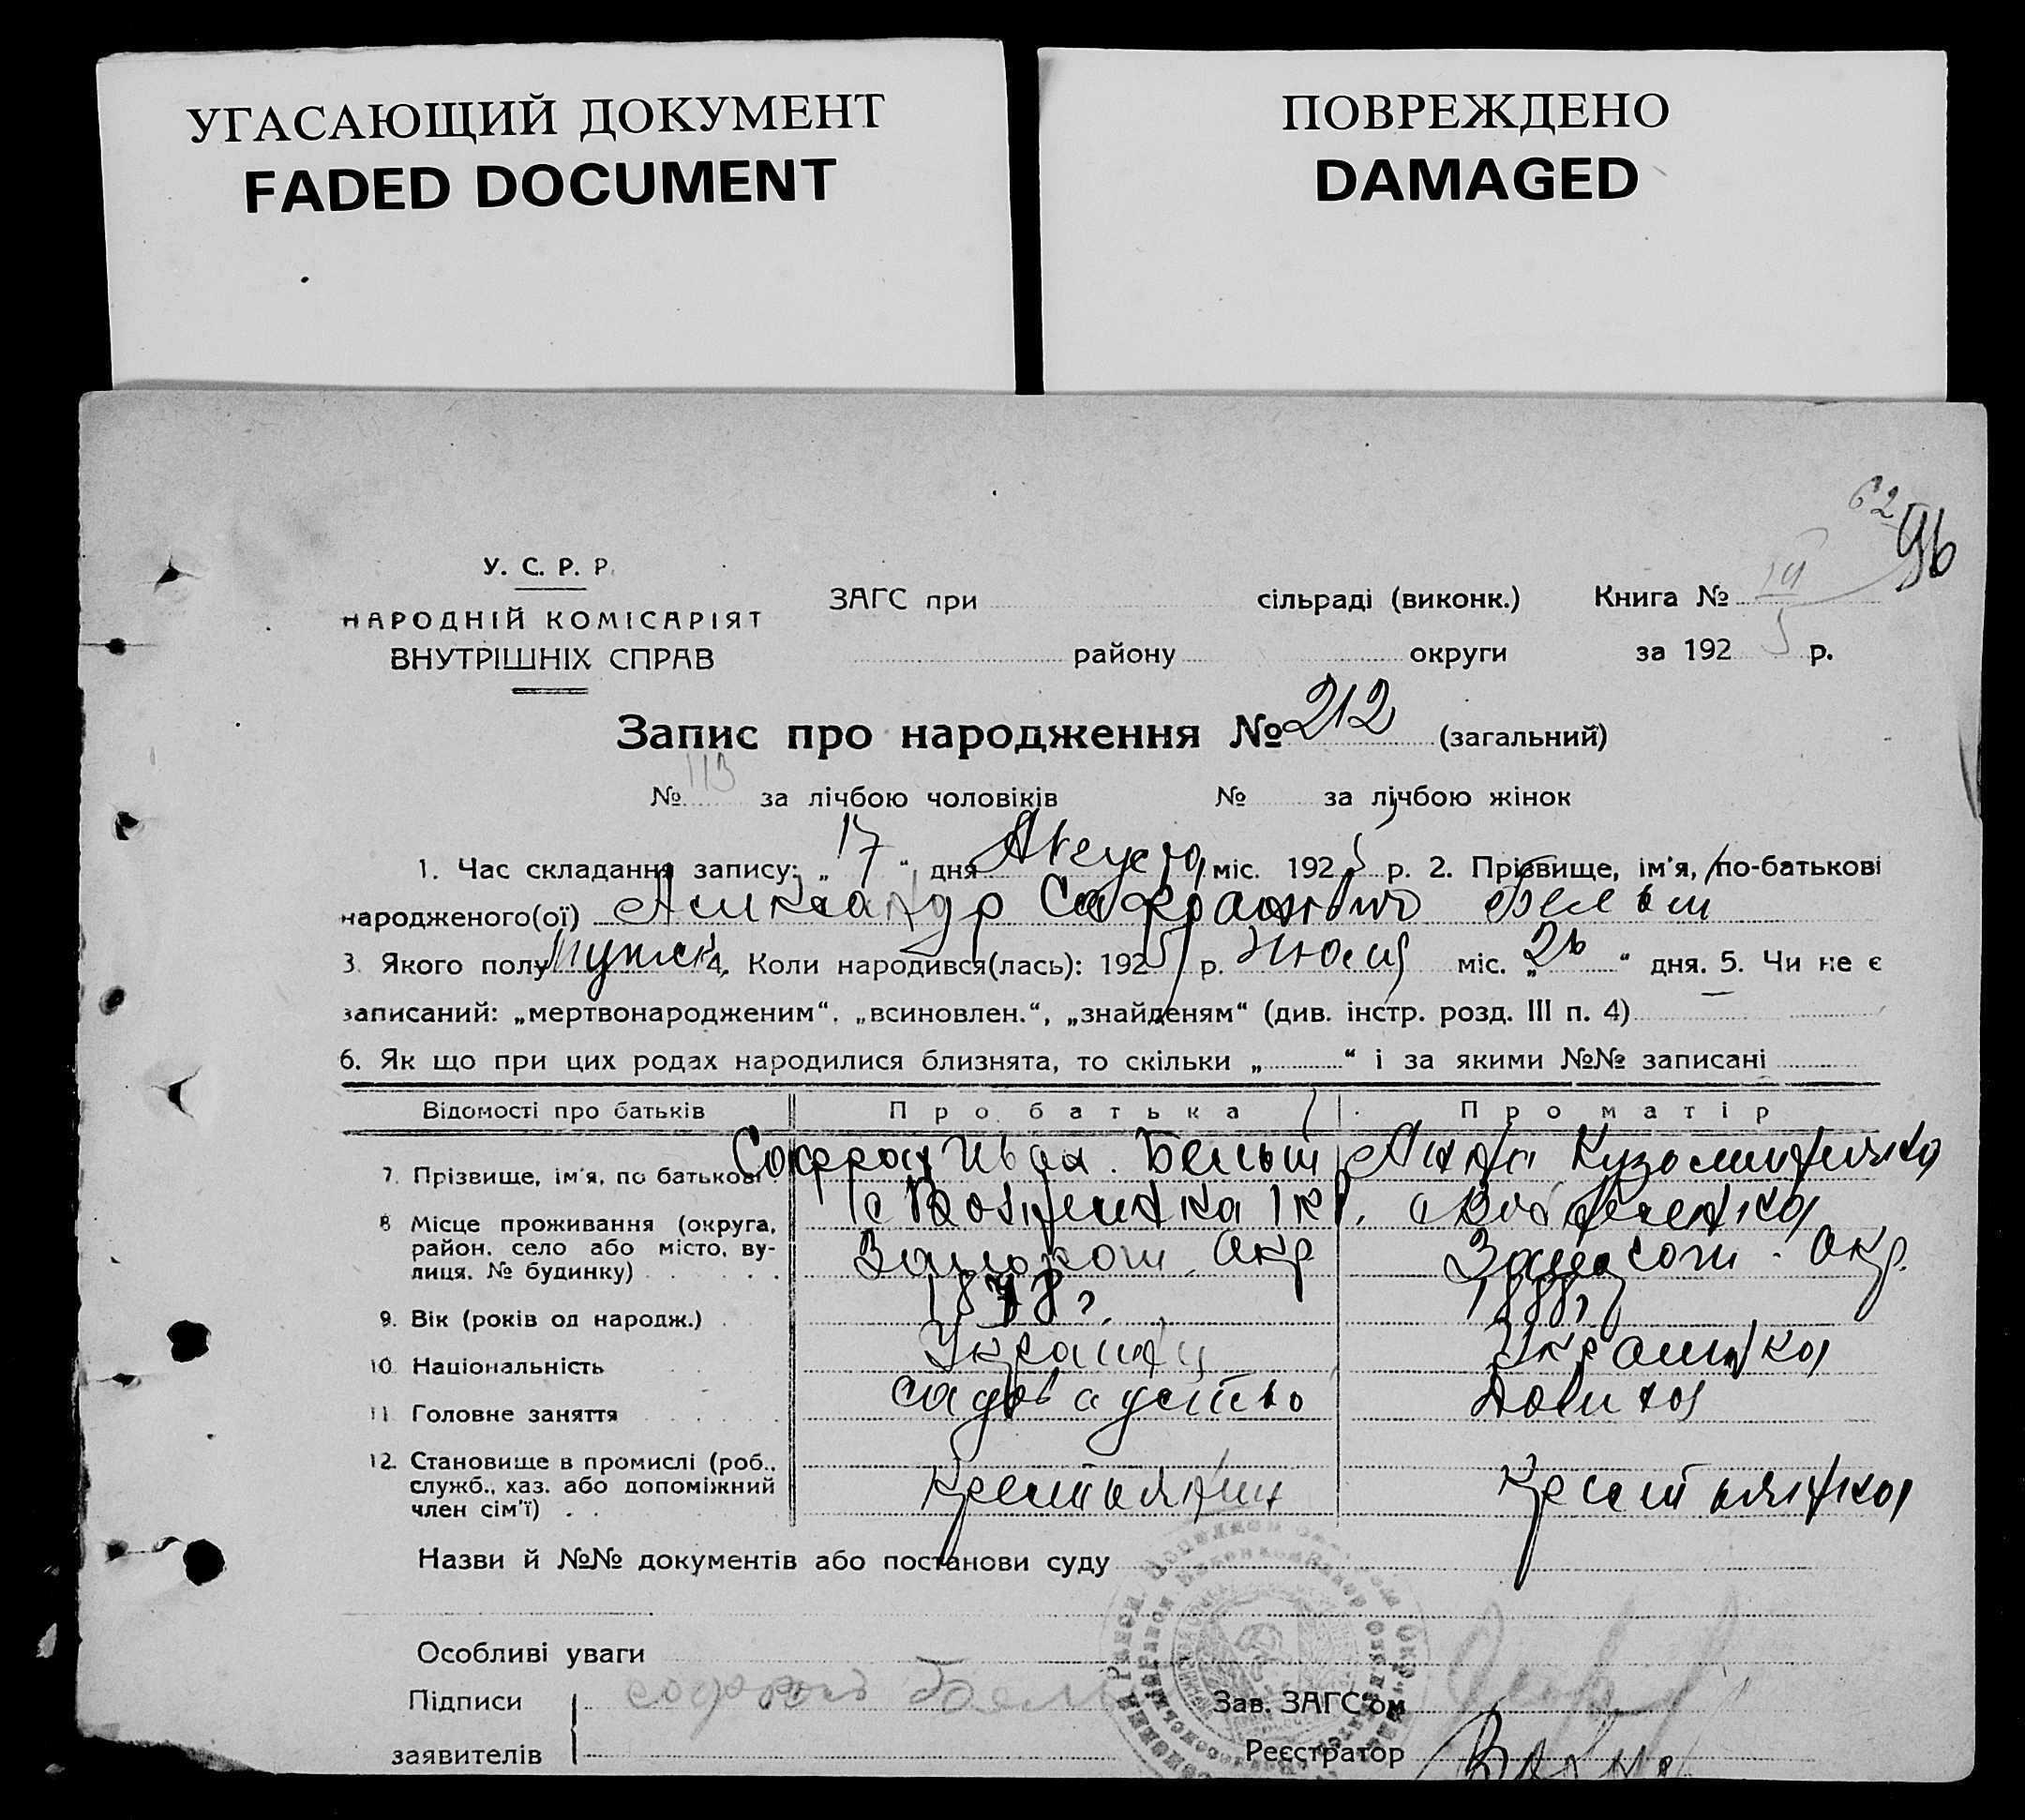 УГАСАЮЩИЙ ДОКУМЕНТ
FADED DOCUMENT
ПОВРЕЖДЕНО
DAMAGED
62
96
У. С. Р. Р.
НАРОДНІЙ КОМІСАРІЯТ
ВНУТРІШНІХ СПРАВ
ЗАГС при сільраді (виконк.) Книга №
району округи за 192 5 р.
Запис про народження № 212 (загальний)
№ 113 за лічбою чоловіків № за лічбою жінок
1. Час складання запису: „ 17 “ дня Августа міс. 192 5 р. 2. Прізвище, ім'я, по-батькові
народженого(ої) Александр Белый
3. Якого полу мужск 4. Коли народився(лась): 192 5 р. Июля міс. „ 26 “ дня. 5. Чи не є
записаний: „мертвонародженим“, „всиновлен.“, „знайденям“ (див. інстр. розд. III п. 4) —
6. Як що при цих родах народилися близнята, то скільки „ “ і за якими №№ записані
Відомості про батьків Про батька Про матір
7. Прізвище, ім'я, по батькові Софрон Иван. Белый Анна
8 Місце проживання (округа, район, село або місто, вулиця, № будинку) с Вознесенка 1 кр. с Вознесенка
Запорож. Окр Запорож. Окр.
9. Вік (років од народж.) 1878 г. 1888 г
10. Національність Украинец Украинка
11 Головне заняття Домаш
12. Становище в промислі (роб., служб., хаз. або допоміжний член сім'ї) Крестьянин Крестьянка
Назви й №№ документів або постанови суду
Особливі уваги
Підписи Софрон Белый Зав. ЗАГС'ом
заявителів Реєстратор